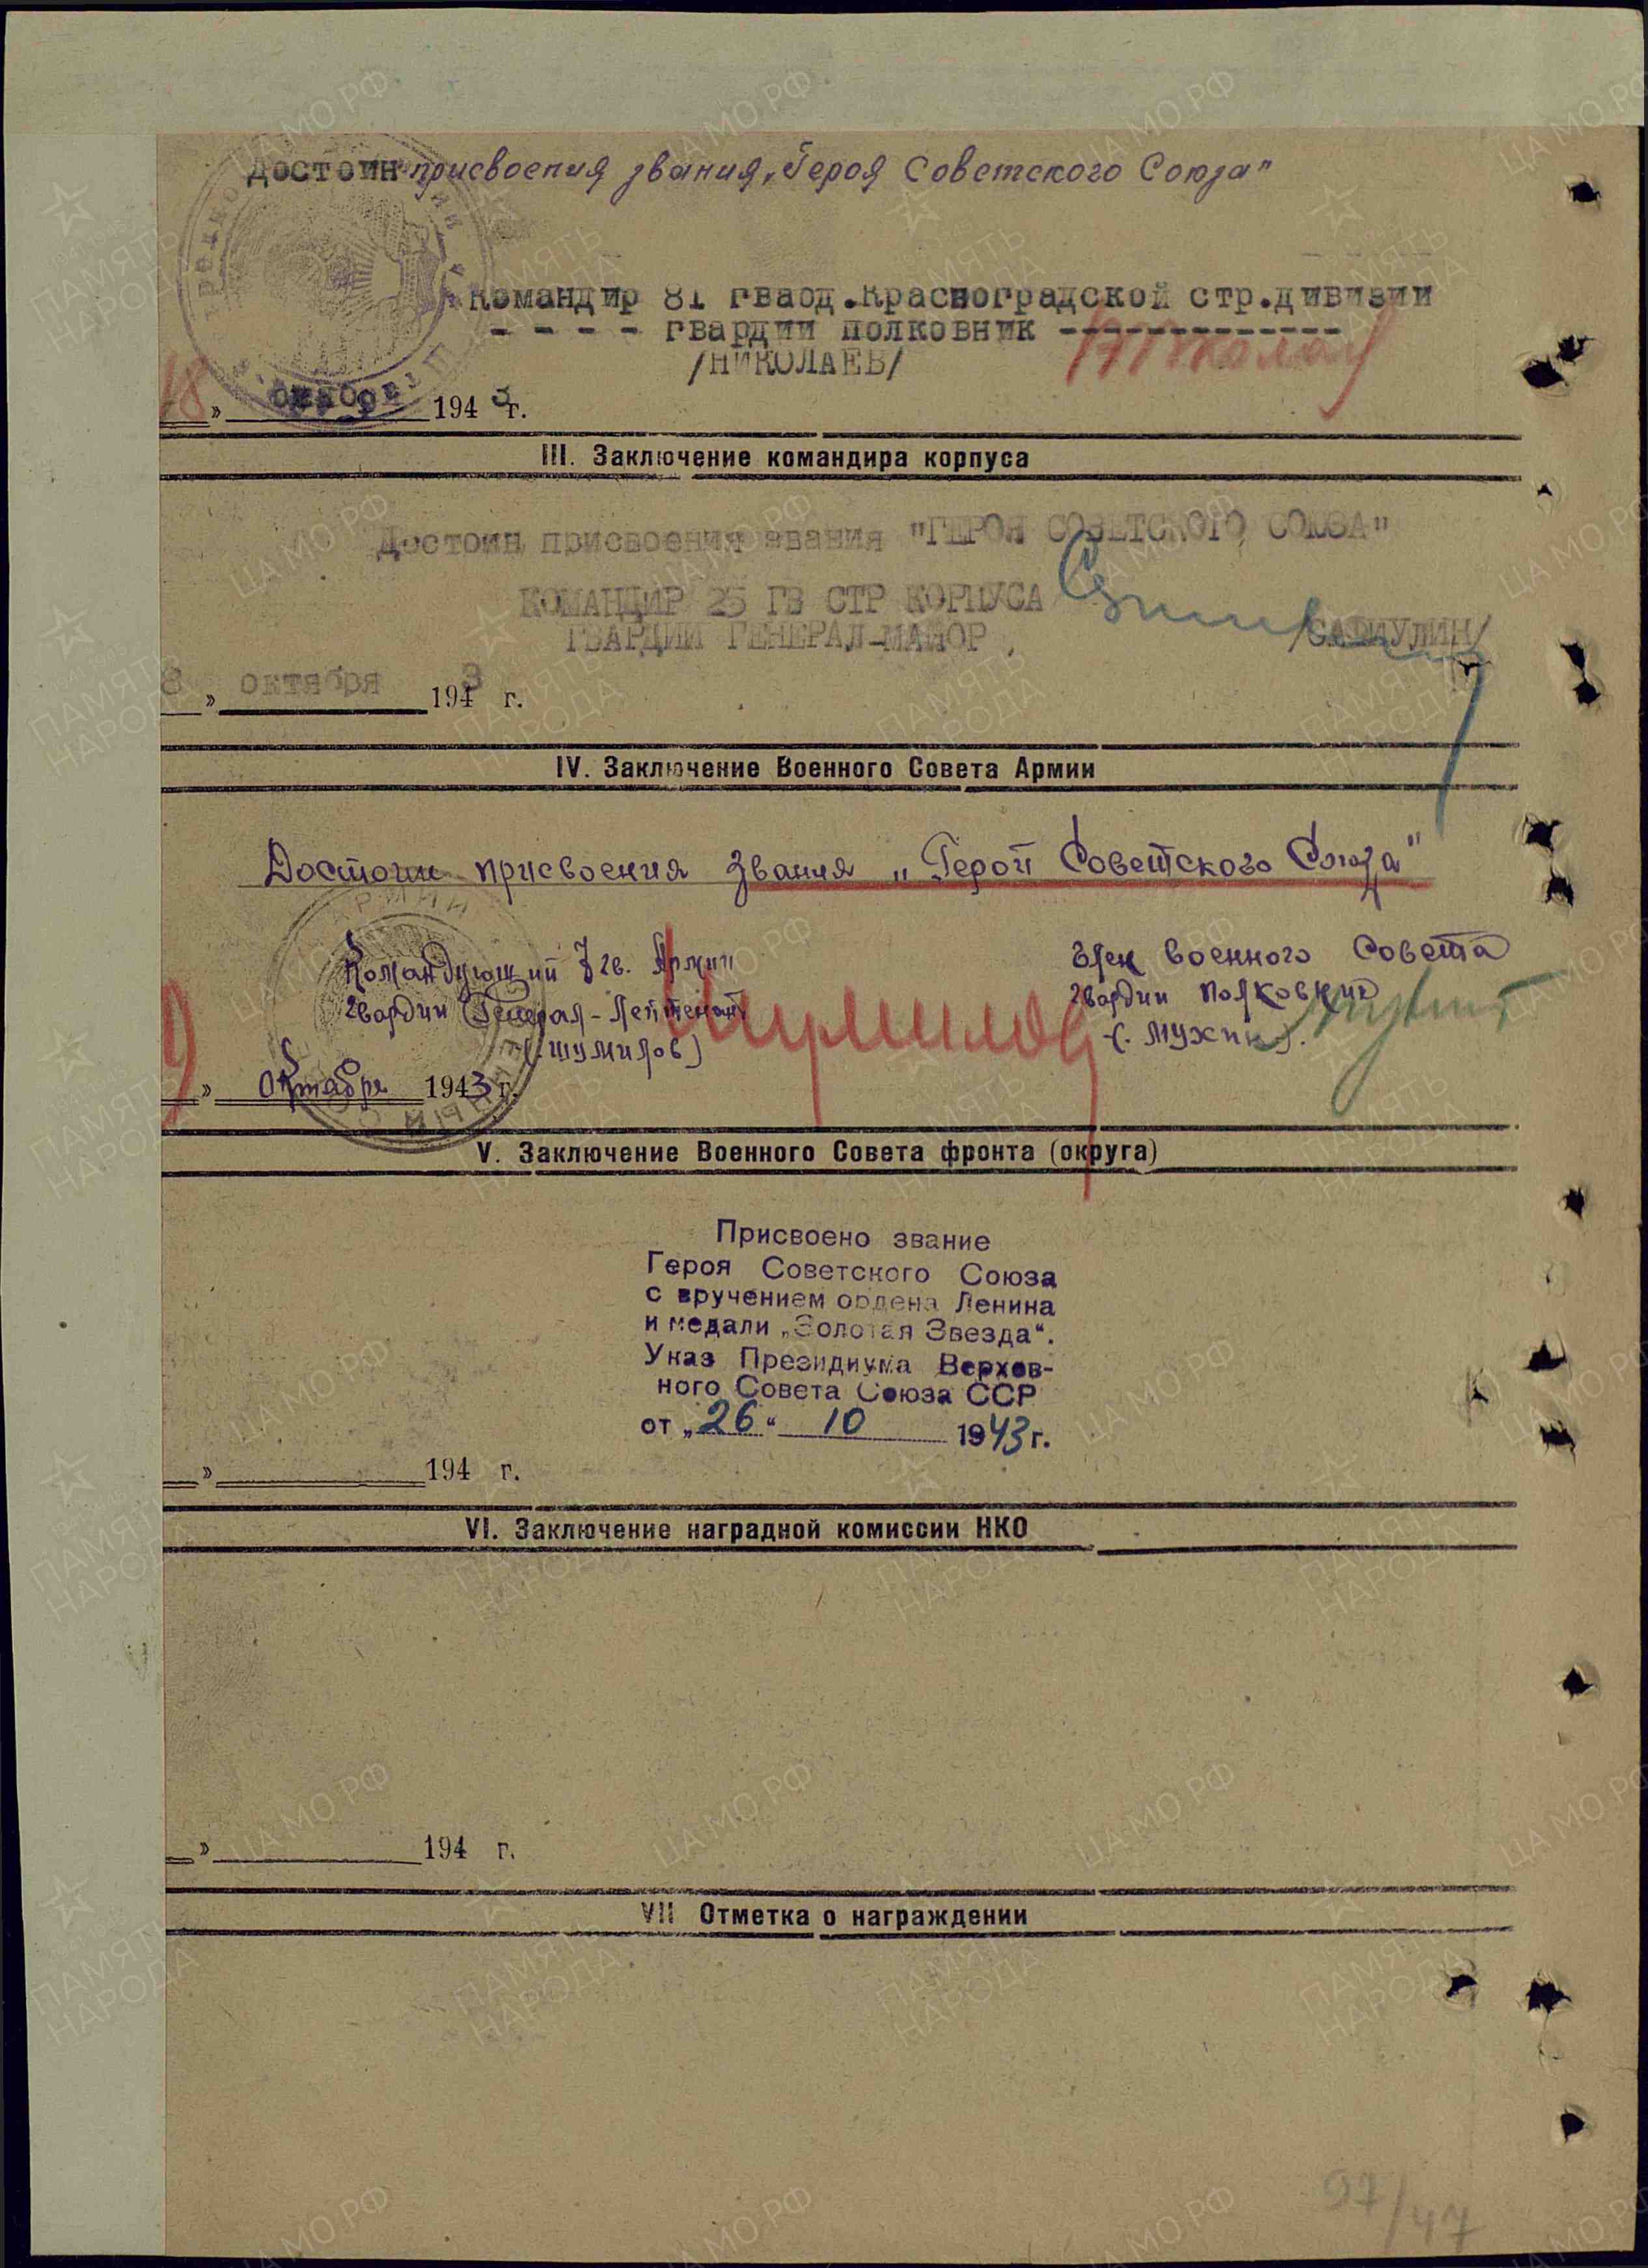 Достоин присвоения звания „Героя Советского Союза"
Командир 81 гвард.Красноградской стр.дивизии
- - - - гвардии полковник -------------
/НИКОЛАЕВ/
18 » октября 1943 г.
III. Заключение командира корпуса
Достоин присвоения звания "ГЕРОЯ СОВЕТСКОГО СОЮЗА"
КОМАНДИР 25 ГВ СТР КОРПУСА
ГВАРДИИ ГЕНЕРАЛ-МАЙОР /САФИУЛИН/
8 » октября 1943 г.
IV. Заключение Военного Совета Армии
Достоин присвоения звания „Герой Советского Союза"
Командующий 7 гв. Армии
гвардии Генерал-Лейтенант
(Шумилов) Шумилов
Член Военного Совета
гвардии полковник
(Мухин).
» Октября 1943 г.
V. Заключение Военного Совета фронта (округа)
Присвоено звание
Героя Советского Союза
с вручением ордена Ленина
и медали „Золотая Звезда".
Указ Президиума Верхов-
ного Совета Союза ССР
от „26" 10 1943 г.
» 194 г.
VI. Заключение наградной комиссии НКО
» 194 г.
VII Отметка о награждении
97/47
ЦА МО РФ
ПАМЯТЬ
НАРОДА